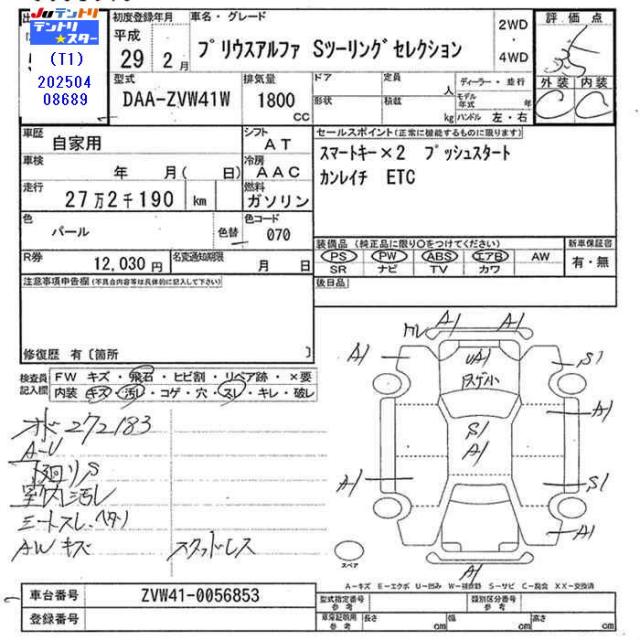 JUテントリ
テントリ
★スター
(T1)
202504
08689
初度登録年月 車名・グレード
平成
29年2月
プリウスアルファ Sツーリングセレクション
2WD
・
4WD
評価点
外装 内装
C C
型式 排気量
DAA-ZVW41W 1800 CC
ドア 定員 人 ディーラー・並行
形状 積載 kg モデル年式 年
ハンドル 左・右
車歴 自家用 シフト AT
車検 年 月( 日) 冷房 AAC
走行 27万2千190 km 燃料 ガソリン
色 パール 色替 色コード 070
R券 12,030円 名変通知期限 月 日
セールスポイント(正常に機能するものに限ります)
スマートキー×2 プッシュスタート
カンレイチ ETC
装備品(純正品に限り○をつけてください) 新車保証書
PS PW ABS エアB AW 有・無
SR ナビ TV カワ
後日品
注意事項申告欄(不具合内容等は具体的に記入して下さい)
修復歴 有〔箇所 〕
検査員記入欄
FW キズ・飛石・ヒビ割・リペア跡・×要
内装 キズ・汚レ・コゲ・穴・スレ・キレ・破レ
272183
A-U
下廻リS
室内汚レ
シートスレ、ヘタリ
AWキズ スタッドレス
A1 A1
A1 UA1 S1
A1
S1
A1
A1 S1
A1
A1
スペア
A-キズ E-エクボ U-凹み W-補修跡 S-サビ C-腐食 XX-交換済
車台番号 ZVW41-0056853
登録番号
型式指定番号 参考 類別区分番号 参考
車庫証明用 参考 長さ cm 幅 cm 高さ cm